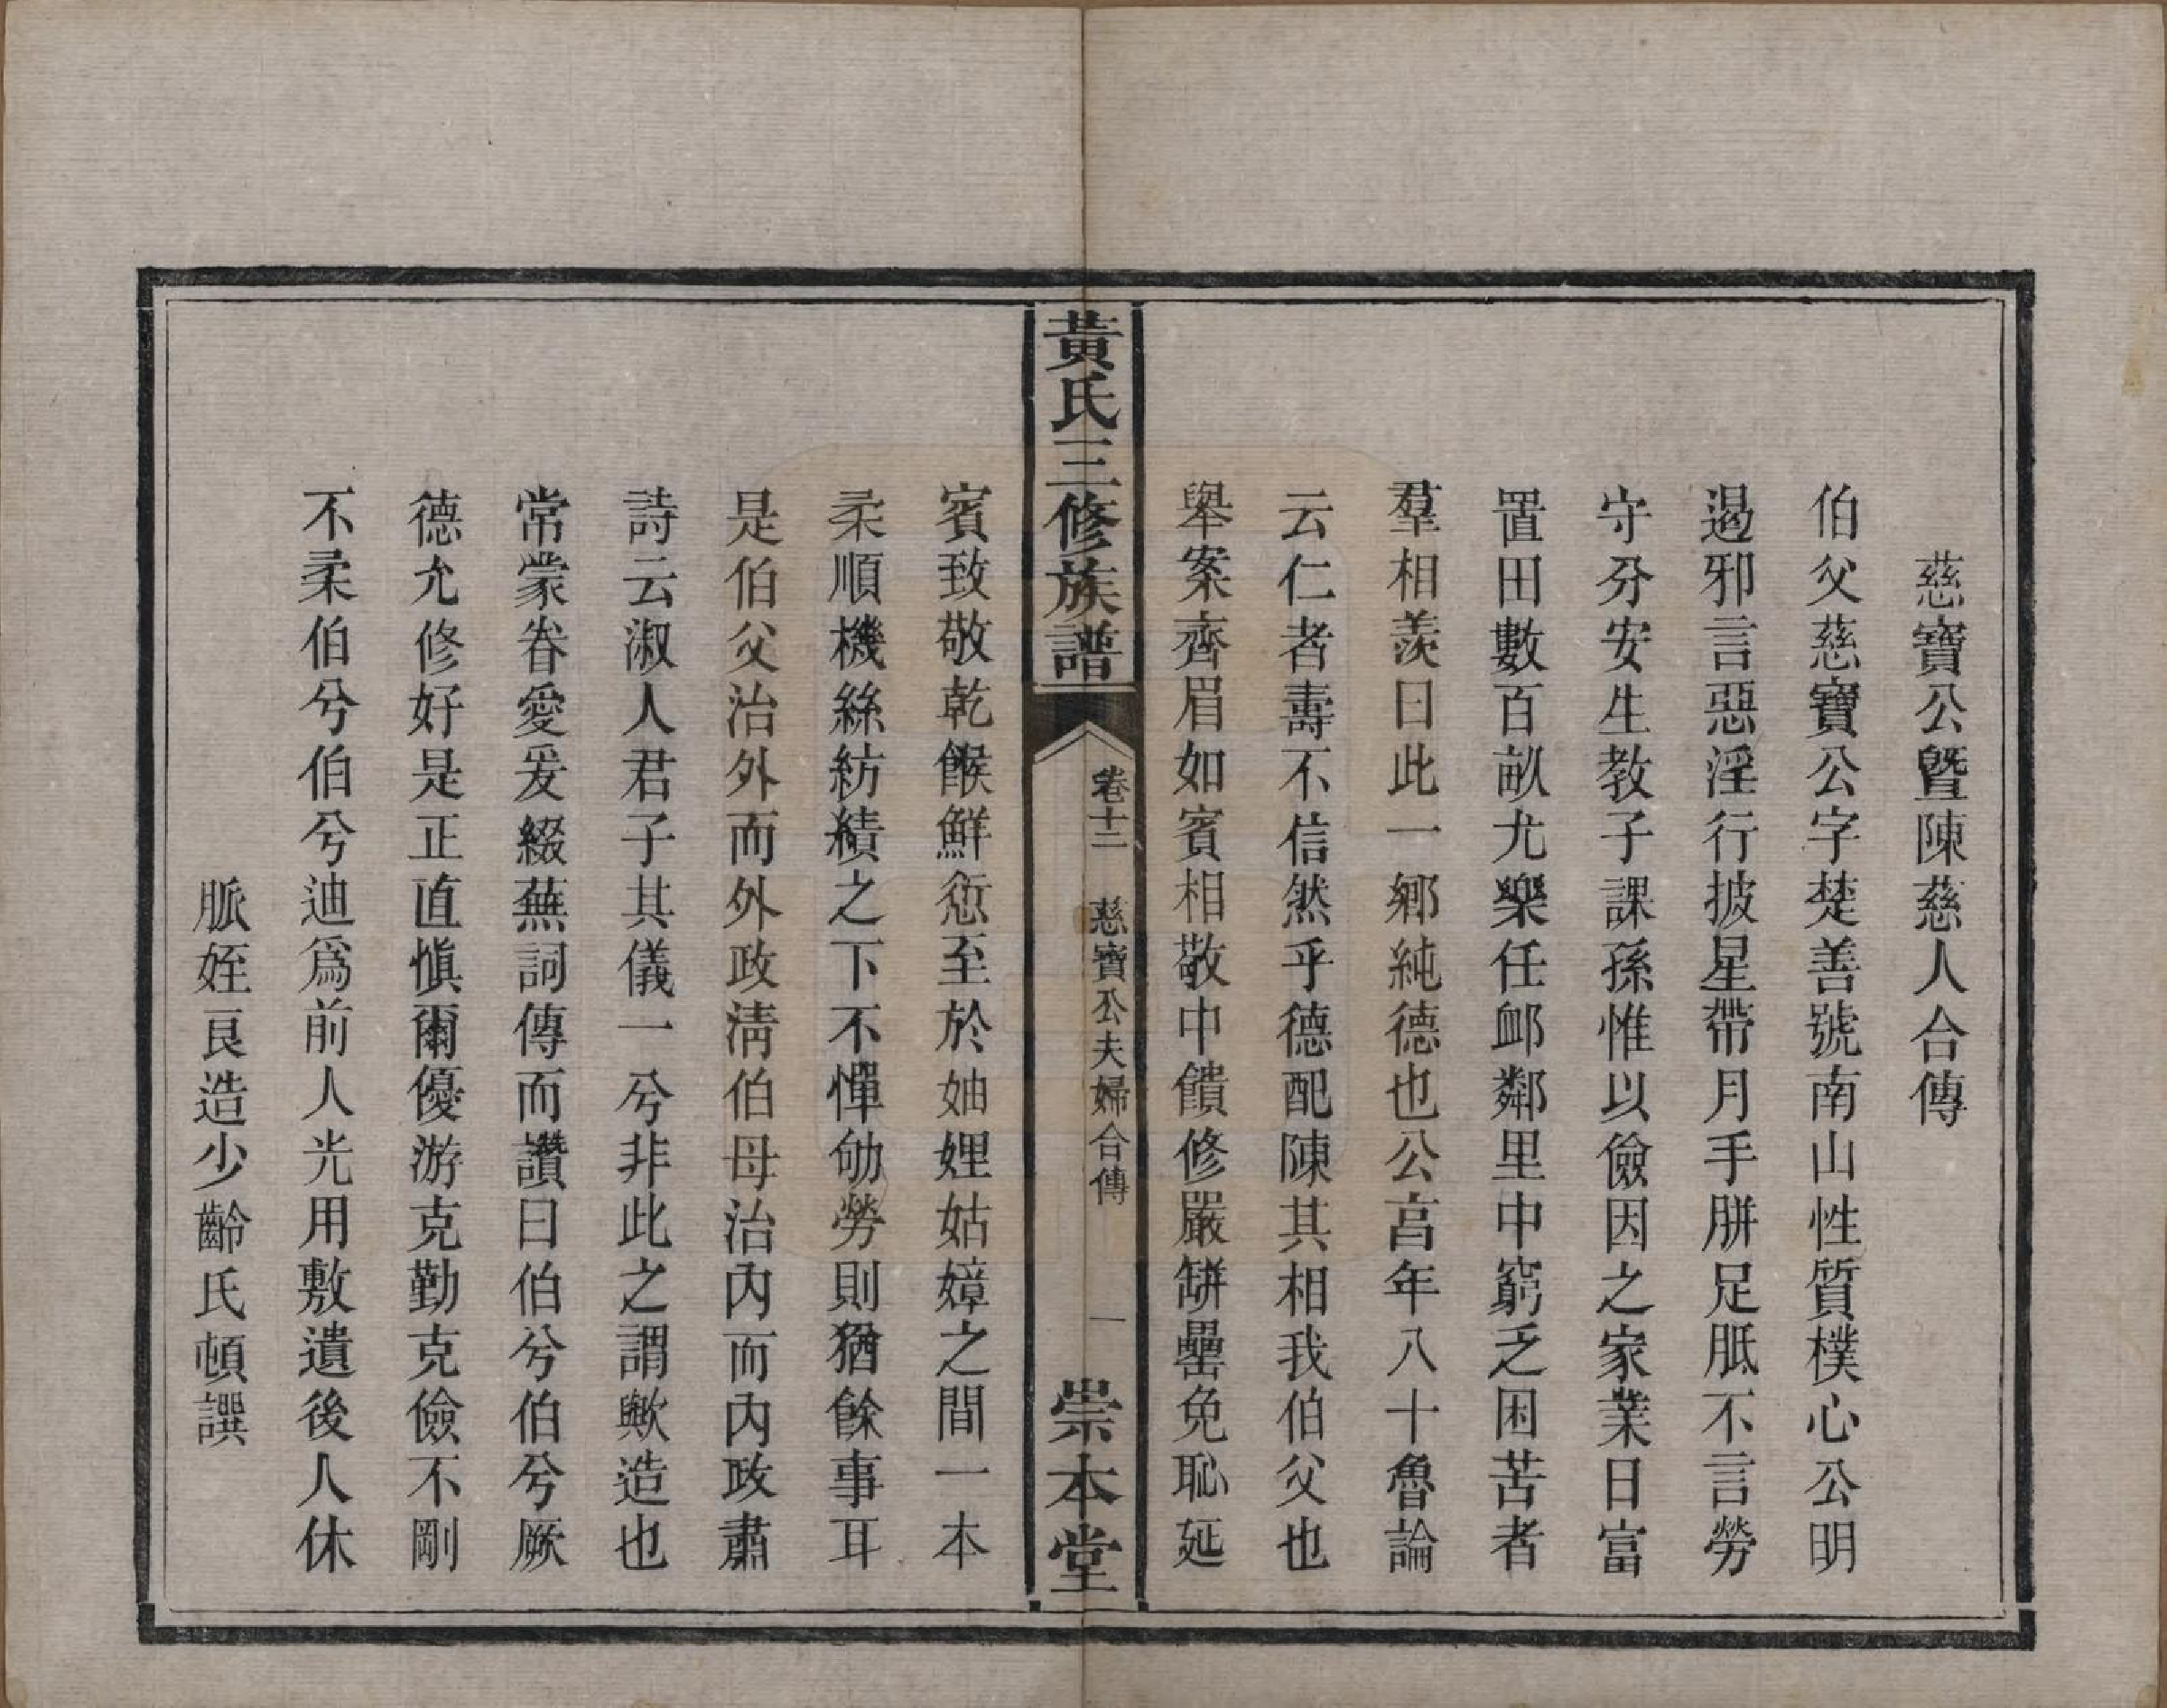 慈寶公暨陳慈人合傳
伯父慈寶公字楚善號南山性質樸心公明
遏邪言惡淫行披星帶月手胼足胝不言勞
守分安生教子課孫惟以儉因之家業日富
置田數百畝尤樂任卹鄰里中窮乏困苦者
羣相羨曰此一鄉純德也公亯年八十魯論
云仁者壽不信然乎德配陳其相我伯父也
舉案齊眉如賓相敬中饋修嚴缾罍免恥延
黃氏三修族譜
卷十二
慈寶公夫婦合傳
一
崇本堂
賓致敬乾餱鮮愆至於妯娌姑嫜之間一本
柔順機絲紡績之下不憚劬勞則猶餘事耳
是伯父治外而外政淸伯母治內而內政肅
詩云淑人君子其儀一兮非此之謂歟造也
常蒙眷愛爰綴蕪詞傳而讚曰伯兮伯兮厥
德允修好是正直愼爾優游克勤克儉不剛
不柔伯兮伯兮迪爲前人光用敷遺後人休
脈姪良造少齡氏頓譔